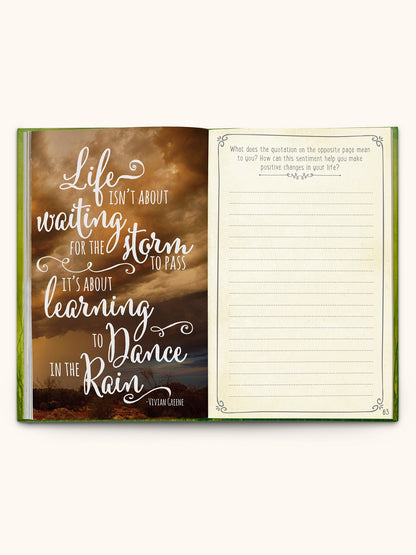 Life
ISN'T ABOUT
waiting
FOR THE storm
TO PASS
IT'S ABOUT
learning
TO Dance
IN THE
Rain
-VIVIAN GREENE
What does the quotation on the opposite page mean
to you? How can this sentiment help you make
positive changes in your life?
63